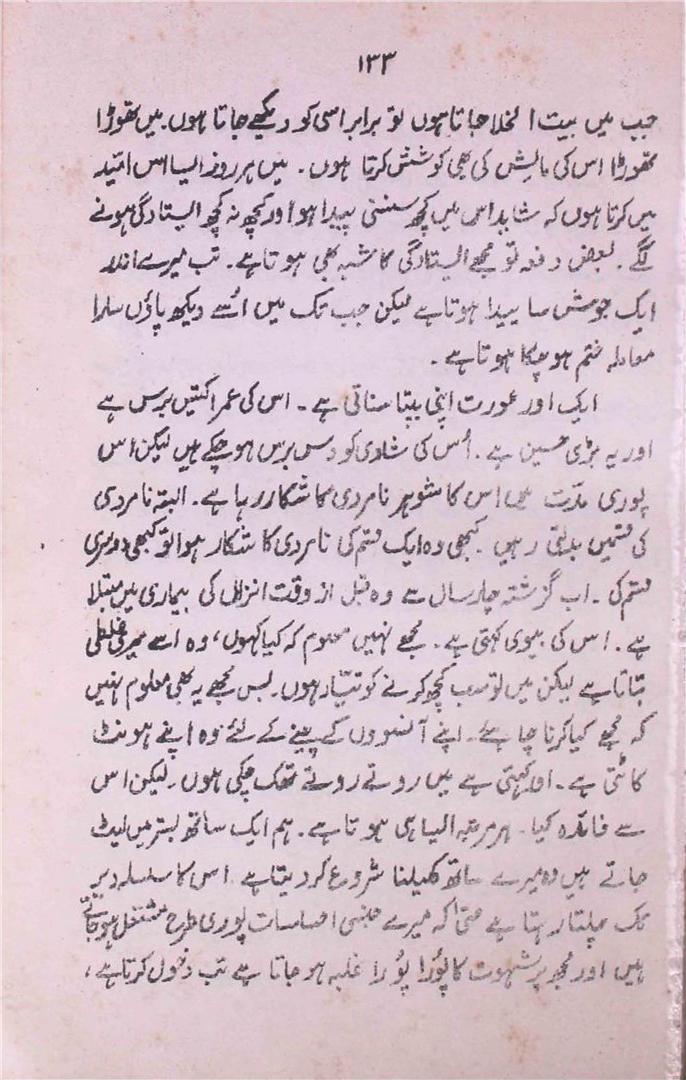 ۱۳۳
جب میں بیت الخلا جاتا ہوں تو برابر اسی کو دیکھے جاتا ہوں۔ میں تھوڑا
تھوڑا اس کی مالش کی بھی کوشش کرتا ہوں۔ میں ہر روز ایسا اس امید
میں کرتا ہوں کہ شاید اس میں کچھ سنسنی پیدا ہو اور کچھ نہ کچھ ایستادگی ہونے
لگے۔ بعض دفعہ تو مجھے ایستادگی کا شبہ بھی ہوتا ہے۔ تب میرے اندر
ایک جوش سا پیدا ہوتا ہے لیکن جب تک میں اُسے دیکھ پاؤں سارا
معاملہ ختم ہو چکا ہوتا ہے۔
ایک اور عورت اپنی بپتا سناتی ہے۔ اس کی عمر اکتیس برس ہے
اور یہ بڑی حسین ہے۔ اُس کی شادی کو دس برس ہو چکے ہیں لیکن اس
پوری مدّت میں اس کا شوہر نامردی کا شکار رہا ہے۔ البتہ نامردی
کی قسمیں بدلتی رہیں۔ کبھی وہ ایک قسم کی نامردی کا شکار ہوا تو کبھی دوسری
قسم کی۔ اب گزشتہ چار سال سے وہ قبل از وقت انزال کی بیماری میں مبتلا
ہے۔ اس کی بیوی کہتی ہے۔ مجھے نہیں معلوم کہ کیا کہوں، وہ اسے میری غلطی
بتاتا ہے لیکن میں تو سب کچھ کرنے کو تیّار ہوں۔ بس مجھے یہ بھی معلوم نہیں
کہ مجھے کیا کرنا چاہئے۔ اپنے آنسووں کے پینے کے لئے وہ اپنے ہونٹ
کاٹتی ہے۔ اور کہتی ہے میں روتے روتے تھک چکی ہوں۔ لیکن اس
سے فائدہ کیا۔ ہر مرتبہ ایسا ہی ہوتا ہے۔ ہم ایک ساتھ بستر میں لیٹ
جاتے ہیں وہ میرے ساتھ کھیلنا شروع کر دیتا ہے۔ اس کا سلسلہ دیر
تک چلتا رہتا ہے حتیٰ کہ میرے جنسی احساسات پوری طرح مشتعل ہو جاتے
ہیں اور مجھ پر شہوت کا پُورا پُورا غلبہ ہو جاتا ہے تب دخول کرتا ہے،